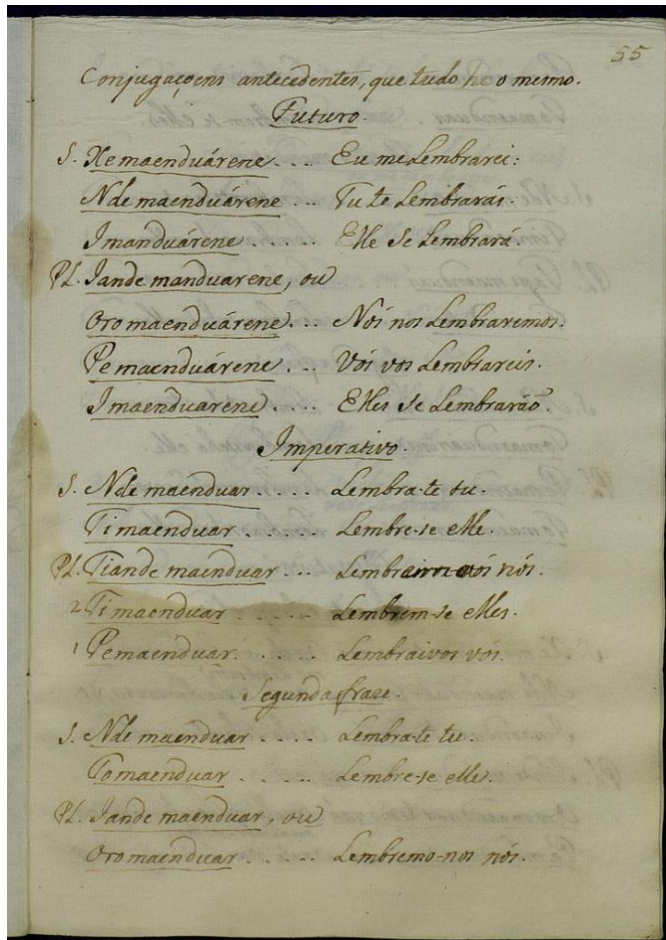 55
Conjugaçoens antecedentes, que tudo he o mesmo.
Futuro.
S. Xe maenduárene.... Eu me Lembrarei:
Nde maenduárene... Tu te Lembrarás.
I manduárene...... Elle Se Lembrará.
Pl. Jande manduarene, ou
Oro maenduárene... Nós nos Lembraremos.
Pe maenduárene... Vós vos Lembrareis.
I maenduarene.... Elles Se Lembrarão.
Imperativo.
S. Nde maenduar.... Lembra-te tu.
Ti maenduar..... Lembre-se elle.
Pl. Tiande maenduar... nós.
2 Ti maenduar..... Lembrem-se elles.
1 Pemaenduar...... Lembraivos vós.
Segunda fraze.
S. Nde maenduar.... Lembra-te tu.
Tomaenduar..... Lembre-se elle.
Pl. Jande maenduar, ou
Oro maenduar..... Lembremo-nos nós.